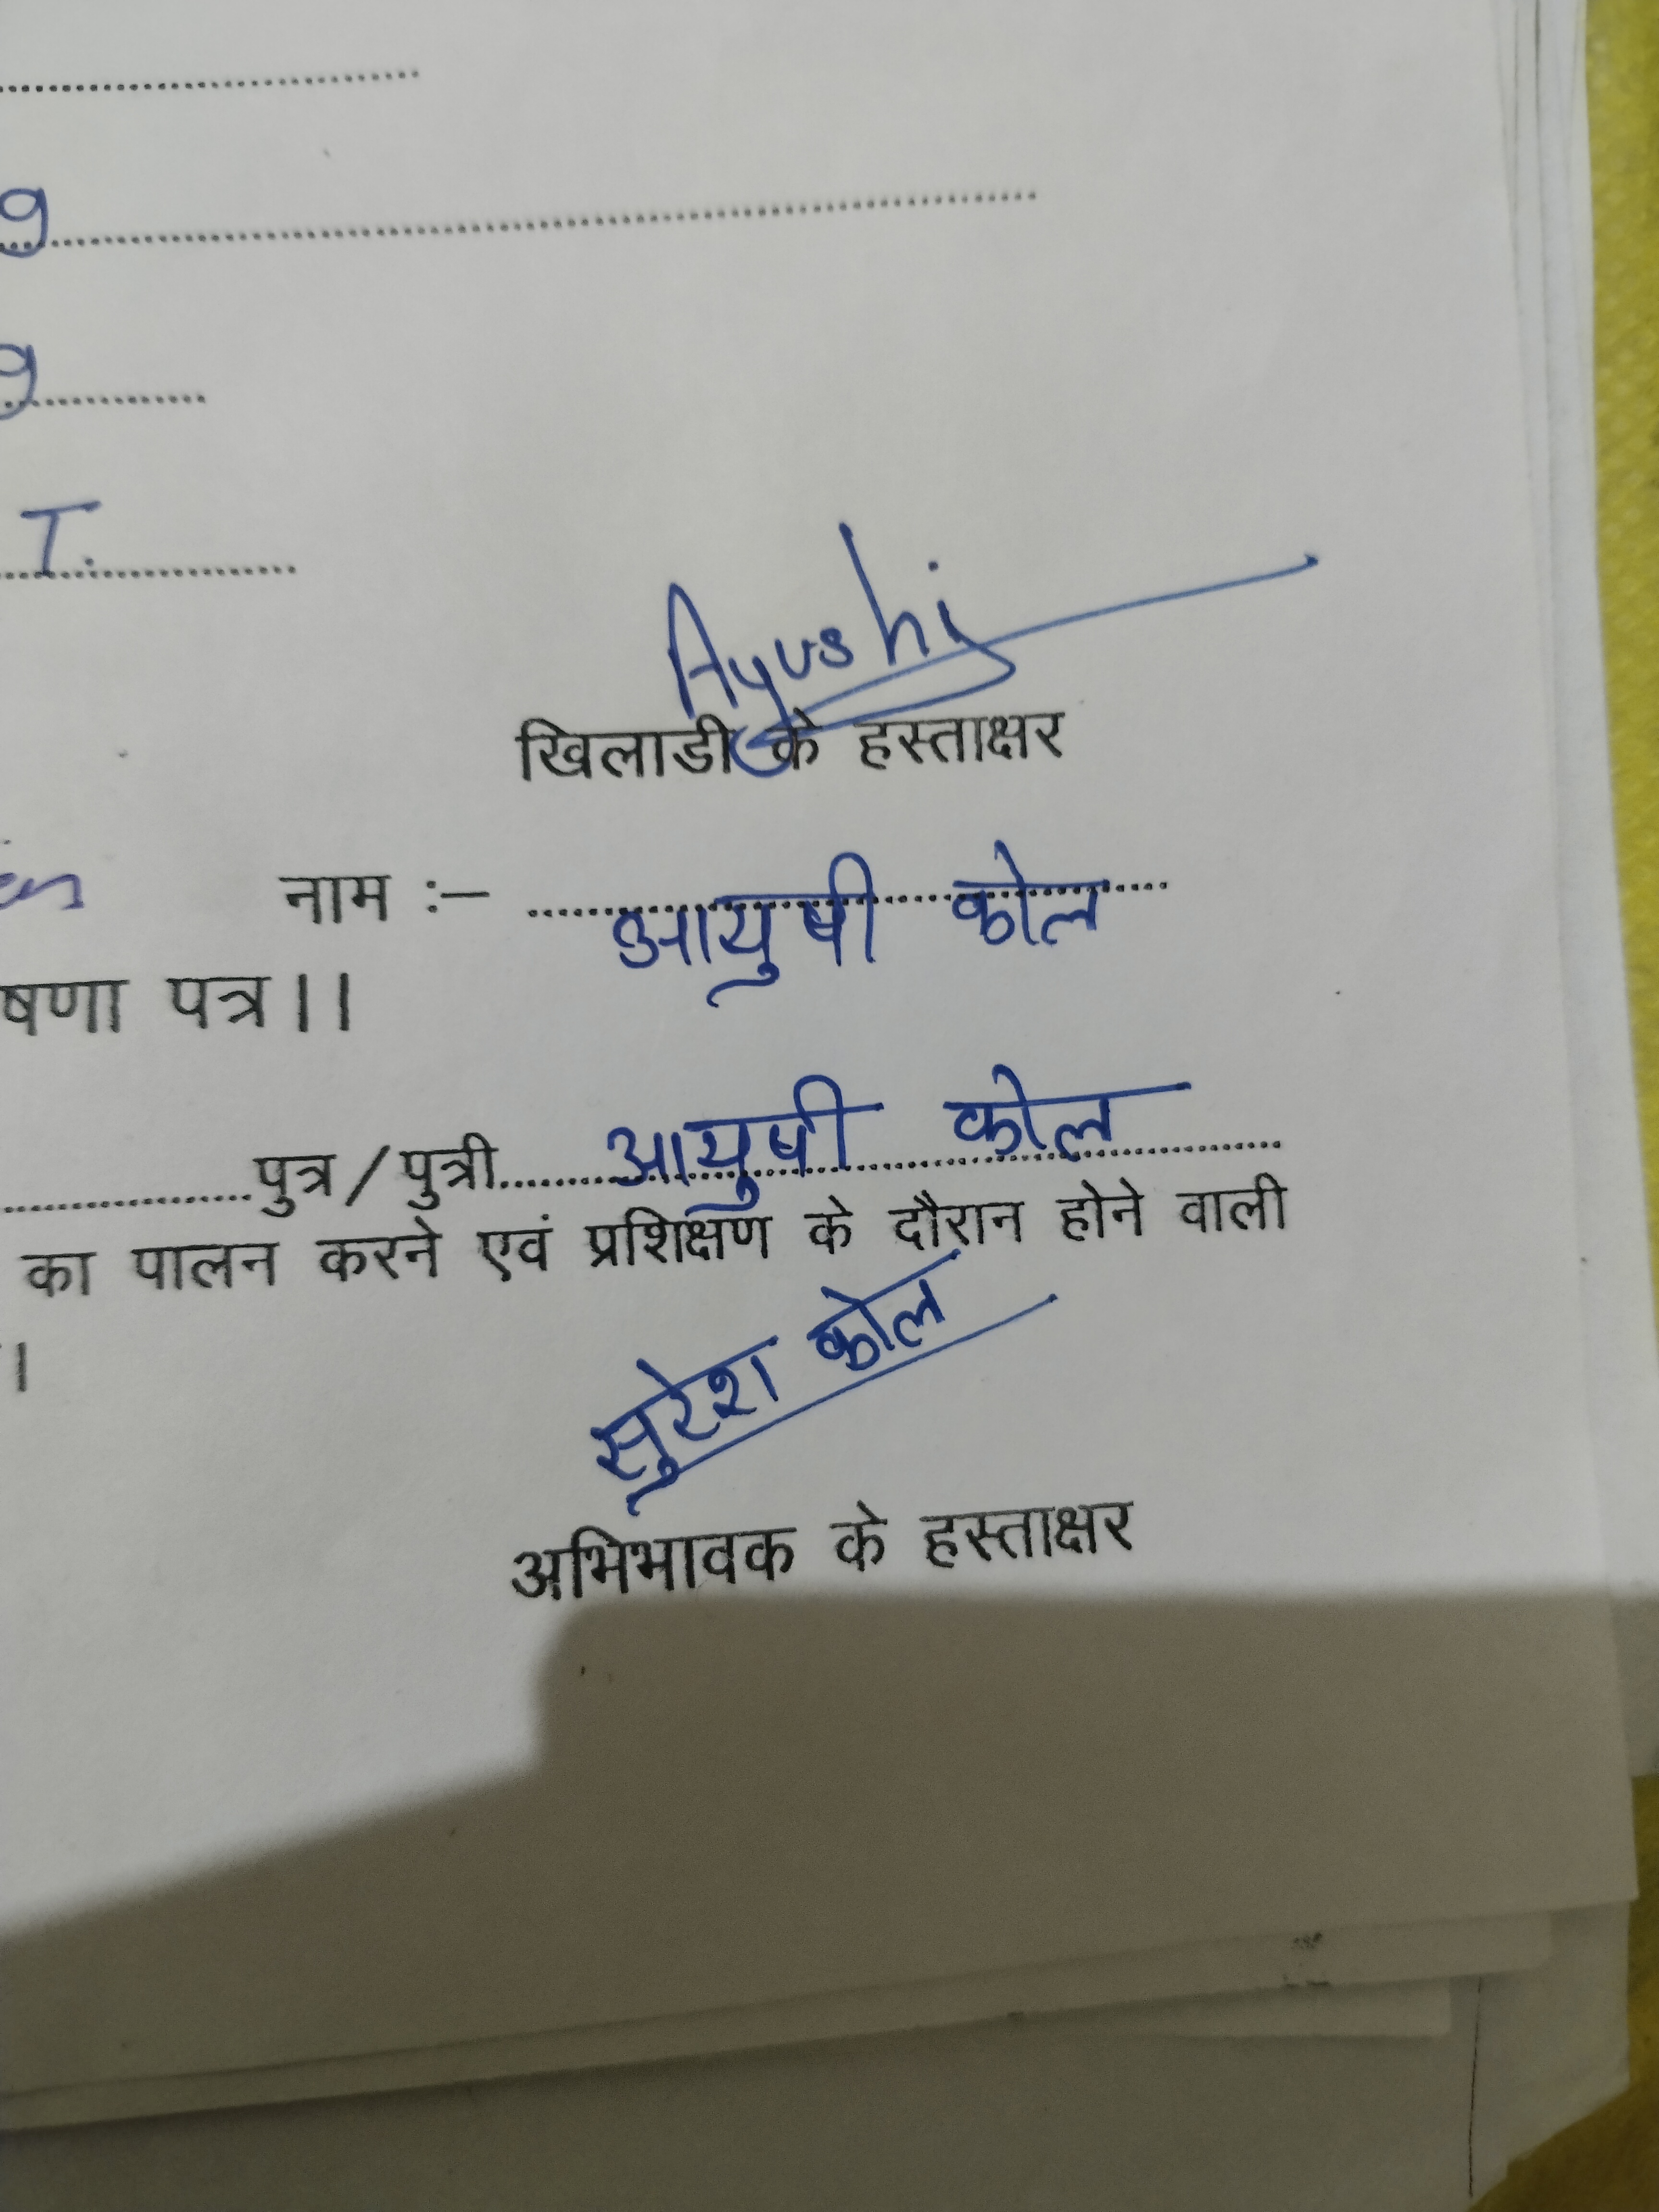 g
g
T.
Ayushi
खिलाडी के हस्ताक्षर
नाम :– आयुषी कोल
षणा पत्र।।
पुत्र/पुत्री आयुषी कोल
का पालन करने एवं प्रशिक्षण के दौरान होने वाली
।
सुरेश कोल
अभिभावक के हस्ताक्षर